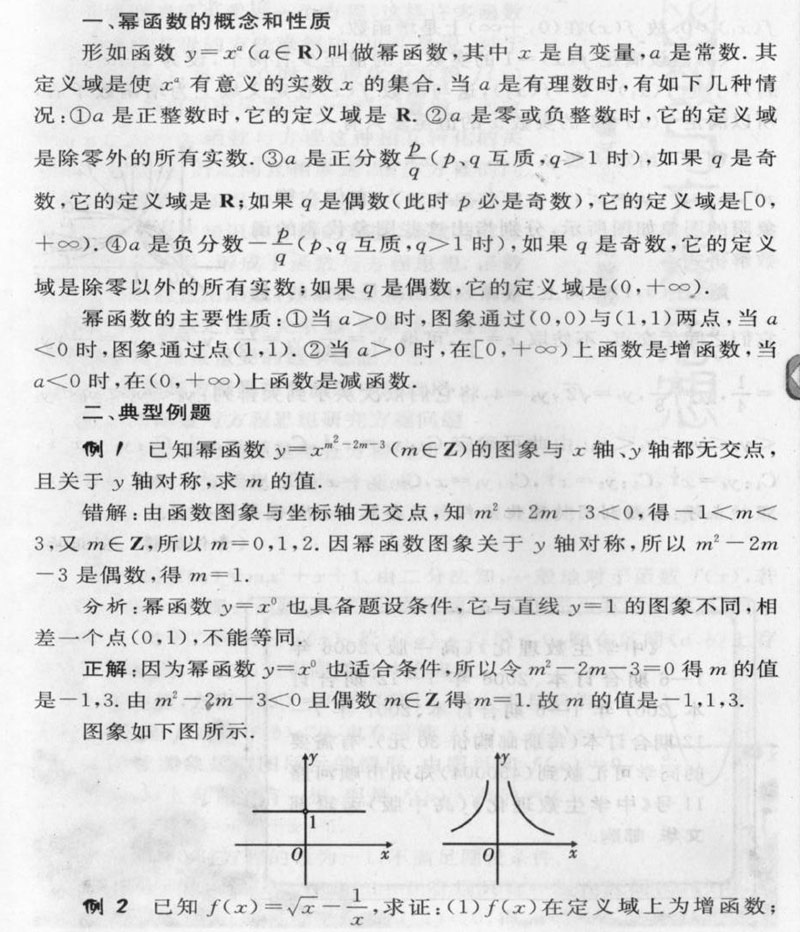 一、幂函数的概念和性质
形如函数 y=xᵃ(a∈R)叫做幂函数,其中 x 是自变量,a 是常数. 其
定义域是使 xᵃ 有意义的实数 x 的集合. 当 a 是有理数时,有如下几种情
况:①a 是正整数时,它的定义域是 R. ②a 是零或负整数时,它的定义域
是除零外的所有实数. ③a 是正分数p/q(p、q 互质,q>1 时),如果 q 是奇
数,它的定义域是 R;如果 q 是偶数(此时 p 必是奇数),它的定义域是[0,
+∞). ④a 是负分数-p/q(p、q 互质,q>1 时),如果 q 是奇数,它的定义
域是除零以外的所有实数;如果 q 是偶数,它的定义域是(0,+∞).
幂函数的主要性质:①当 a>0 时,图象通过(0,0)与(1,1)两点,当 a
<0 时,图象通过点(1,1). ②当 a>0 时,在[0,+∞)上函数是增函数,当
a<0 时,在(0,+∞)上函数是减函数.
二、典型例题
例 1 已知幂函数 y=x^(m²-2m-3)(m∈Z)的图象与 x 轴、y 轴都无交点,
且关于 y 轴对称,求 m 的值.
错解:由函数图象与坐标轴无交点,知 m²-2m-3<0,得-1<m<
3,又 m∈Z,所以 m=0,1,2. 因幂函数图象关于 y 轴对称,所以 m²-2m
-3 是偶数,得 m=1.
分析:幂函数 y=x⁰ 也具备题设条件,它与直线 y=1 的图象不同,相
差一个点(0,1),不能等同.
正解:因为幂函数 y=x⁰ 也适合条件,所以令 m²-2m-3=0 得 m 的值
是-1,3. 由 m²-2m-3<0 且偶数 m∈Z 得 m=1. 故 m 的值是-1,1,3.
图象如下图所示.
y
1
O
x
y
O
x
例 2 已知 f(x)=√x-1/x,求证:(1)f(x)在定义域上为增函数;